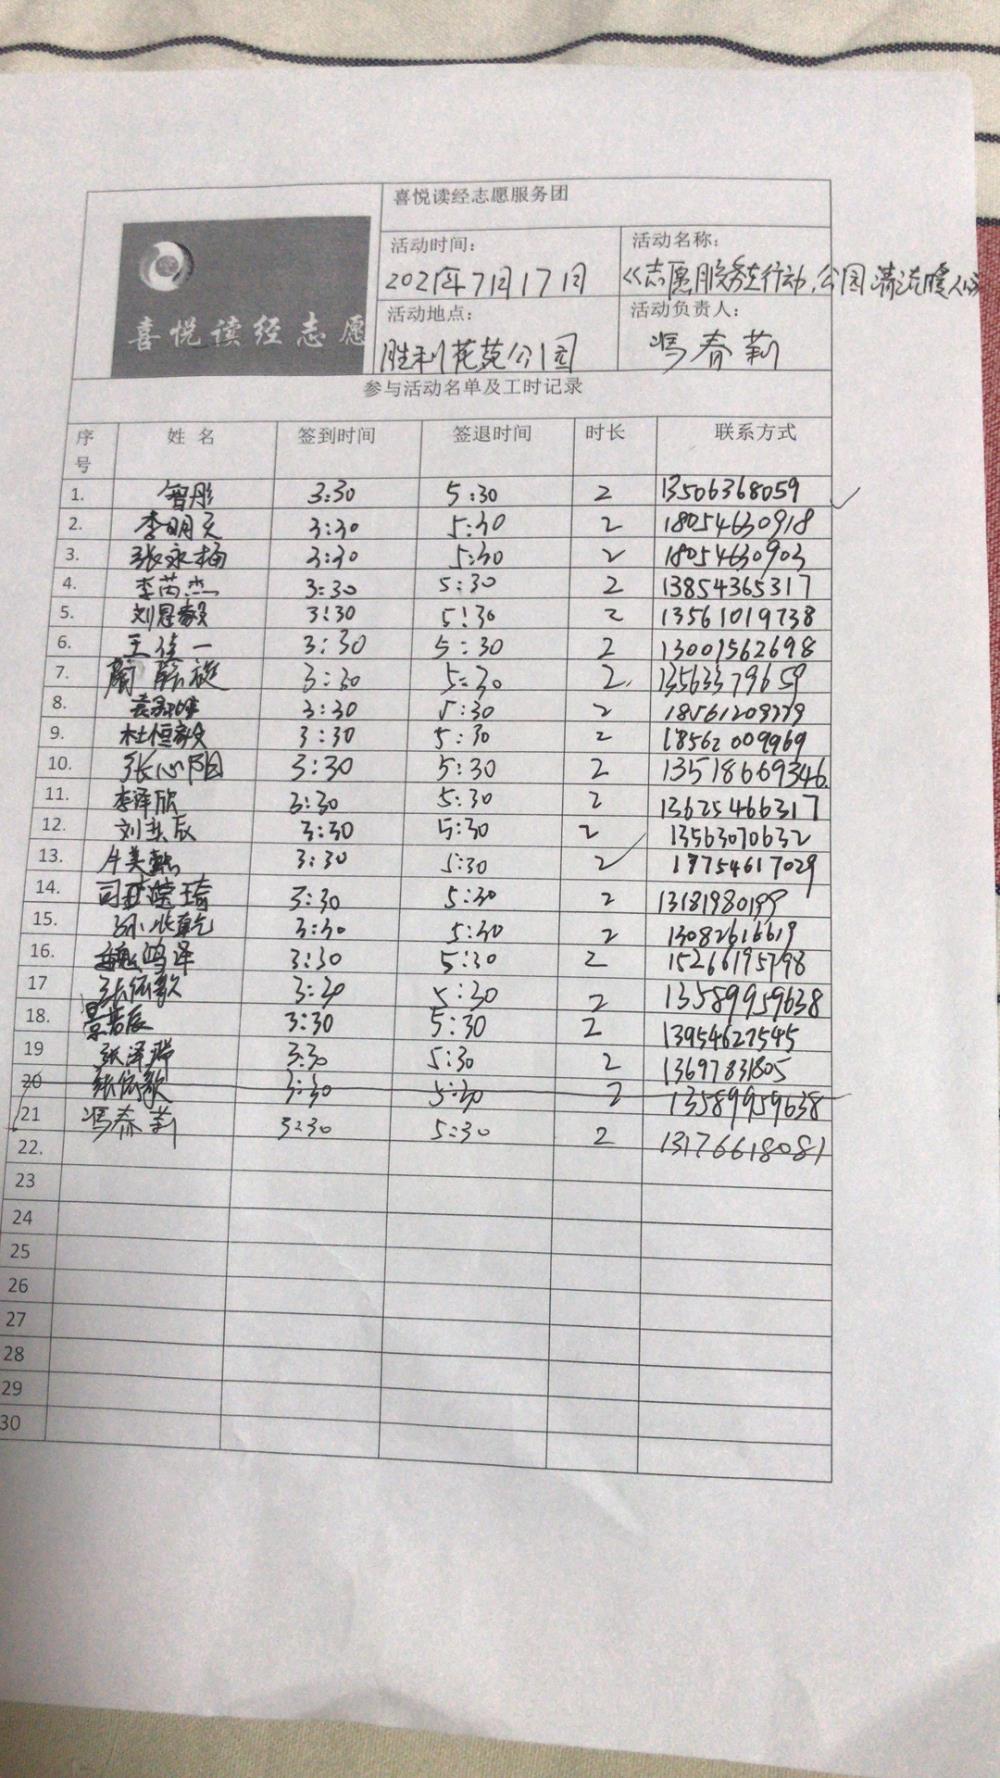 喜悦读经志愿服务团
喜悦读经志愿
活动时间：
2021年7月17日
活动名称：
《志愿服务在行动，公园清洁暖人心
活动地点：
胜利花苑公园
活动负责人：
冯春莉
参与活动名单及工时记录
序号 姓名 签到时间 签退时间 时长 联系方式
1. 智彤 3:30 5:30 2 13506368059
2. 李明文 3:30 5:30 2 18054630918
3. 张永梅 3:30 5:30 2 18054630903
4. 李芮杰 3:30 5:30 2 13854365317
5. 刘恩毅 3:30 5:30 2 13561019738
6. 王佳一 3:30 5:30 2 13001562698
7. 3:30 5:30 2 13563379659
8. 3:30 5:30 2 18561209779
9. 杜恒毅 3:30 5:30 2 18562009969
10. 张心阳 3:30 5:30 2 13518669346
11. 李泽欣 3:30 5:30 2 13625466317
12. 刘奕辰 3:30 5:30 2 13563070632
13. 3:30 5:30 2 17754617029
14. 3:30 5:30 2 13181980199
15. 3:30 5:30 2 13082616619
16. 魏鸿泽 3:30 5:30 2 15266195798
17 张依歌 3:30 5:30 2 13589959638
18. 景若辰 3:30 5:30 2 13954627545
19 张泽瑞 3:30 5:30 2 13697831805
20 张依歌 3:30 5:30 2 13589959638
21 冯春莉 3:30 5:30 2 13176618081
22.
23
24
25
26
27
28
29
30